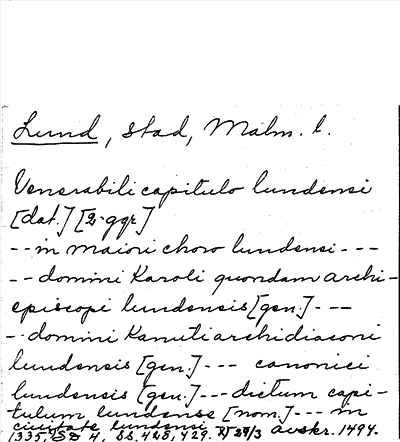 Lund, stad, Malm. l.
Venerabili capitulo lundensi
[dat.] [2 ggr.]
-- in maiori choro lundensi ---
-- domini Karoli quondam archi-
episcopi lundensis [gen.] ---
-- domini Kanuti archidiaconi
lundensis [gen.] --- canonici
lundensis [gen.] --- dictum capi-
tulum lundense [nom.] --- in
civitate lundensi
1335, SD 4, ss. 428, 429. 27/3 avskr. 1494.